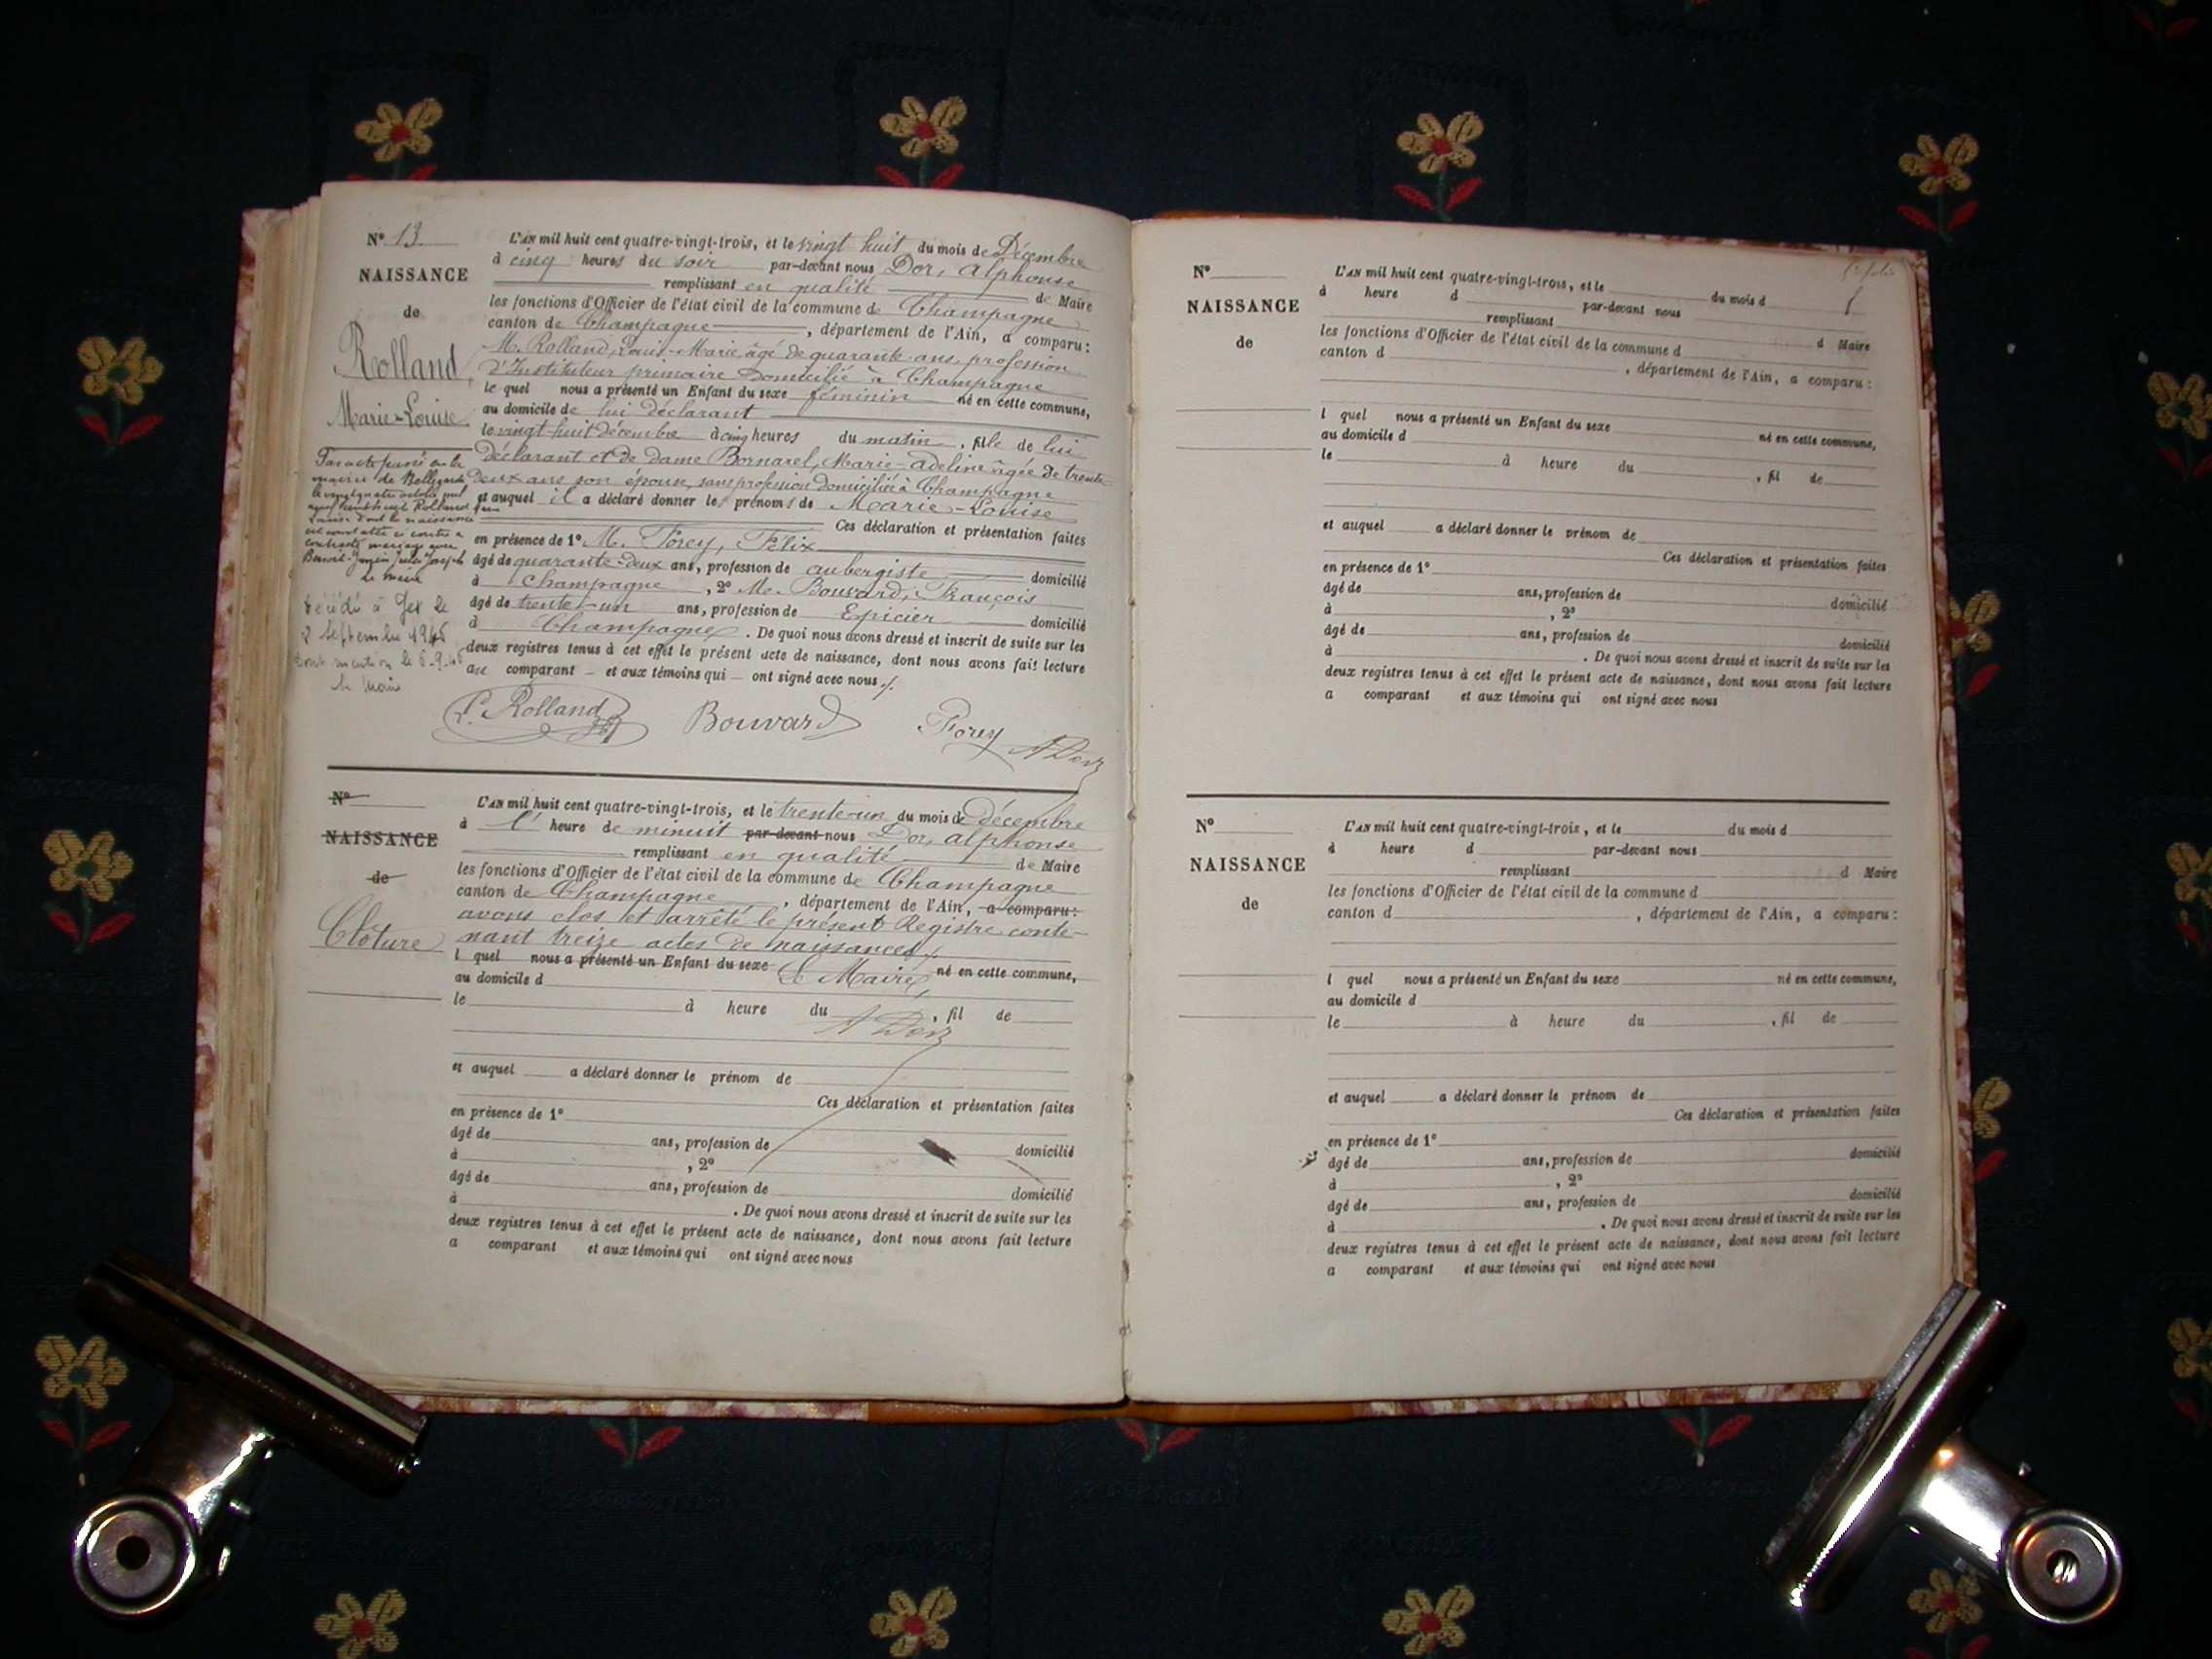 N° 13
NAISSANCE
de
Rolland
Marie-Louise
L'AN mil huit cent quatre-vingt-trois, et le vingt huit du mois de Décembre
à cinq heures du soir par-devant nous Dor, Alphonse
remplissant en qualité de Maire
les fonctions d'Officier de l'état civil de la commune de Champagne
canton de Champagne, département de l'Ain, a comparu:
M. Rolland, Louis-Marie, âgé de quarante ans, profession
d'Instituteur primaire domicilié à Champagne
le quel nous a présenté un Enfant du sexe féminin né en cette commune,
au domicile de lui déclarant
le vingt-huit décembre à cinq heures du matin, fille de lui
déclarant et de dame Bornarel, Marie-Adeline âgée de trente-
deux ans son épouse, sans profession domiciliée à Champagne
et auquel il a déclaré donner les prénoms de Marie-Louise
Ces déclaration et présentation faites
en présence de 1° M. Forey, Félix
âgé de quarante-deux ans, profession de aubergiste domicilié
à Champagne, 2° M. Bouvard, François
âgé de trente-un ans, profession de Epicier domicilié
à Champagne. De quoi nous avons dressé et inscrit de suite sur les
deux registres tenus à cet effet le présent acte de naissance, dont nous avons fait lecture
au comparant – et aux témoins qui – ont signé avec nous ./.
Par acte passé en la
mairie de Bellegarde
le vingt quatre octobre mil
neuf cent Rolland
Louise dont la naissance
est constatée ci contre a
contracté mariage avec
Jules Joseph
Le maire
Décédée à Gex le
2 Septembre 1946
mention le 6-9-46
le Maire
L. Rolland Bouvard Forey A Dor
N°
NAISSANCE
de
Clôture
L'AN mil huit cent quatre-vingt-trois, et le trente-un du mois de Décembre
à l' heure de minuit par-devant nous Dor, Alphonse
remplissant en qualité de Maire
les fonctions d'Officier de l'état civil de la commune de Champagne
canton de Champagne, département de l'Ain, a comparu:
avons clos et arrêté le présent Registre conte-
nant treize actes de naissances ./.
l quel nous a présenté un Enfant du sexe né en cette commune,
Le Maire,
au domicile d
le à heure du , fil de
A Dor
et auquel a déclaré donner le prénom de
Ces déclaration et présentation faites
en présence de 1°
âgé de ans, profession de domicilié
à , 2°
âgé de ans, profession de domicilié
à . De quoi nous avons dressé et inscrit de suite sur les
deux registres tenus à cet effet le présent acte de naissance, dont nous avons fait lecture
a comparant et aux témoins qui ont signé avec nous
N°
NAISSANCE
de
L'AN mil huit cent quatre-vingt-trois, et le du mois d
à heure d par-devant nous
remplissant d Maire
les fonctions d'Officier de l'état civil de la commune d
canton d , département de l'Ain, a comparu:
l quel nous a présenté un Enfant du sexe né en cette commune,
au domicile d
le à heure du , fil de
et auquel a déclaré donner le prénom de
Ces déclaration et présentation faites
en présence de 1°
âgé de ans, profession de domicilié
à , 2°
âgé de ans, profession de domicilié
à . De quoi nous avons dressé et inscrit de suite sur les
deux registres tenus à cet effet le présent acte de naissance, dont nous avons fait lecture
a comparant et aux témoins qui ont signé avec nous
N°
NAISSANCE
de
L'AN mil huit cent quatre-vingt-trois, et le du mois d
à heure d par-devant nous
remplissant d Maire
les fonctions d'Officier de l'état civil de la commune d
canton d , département de l'Ain, a comparu:
l quel nous a présenté un Enfant du sexe né en cette commune,
au domicile d
le à heure du , fil de
et auquel a déclaré donner le prénom de
Ces déclaration et présentation faites
en présence de 1°
âgé de ans, profession de domicilié
à , 2°
âgé de ans, profession de domicilié
à . De quoi nous avons dressé et inscrit de suite sur les
deux registres tenus à cet effet le présent acte de naissance, dont nous avons fait lecture
a comparant et aux témoins qui ont signé avec nous